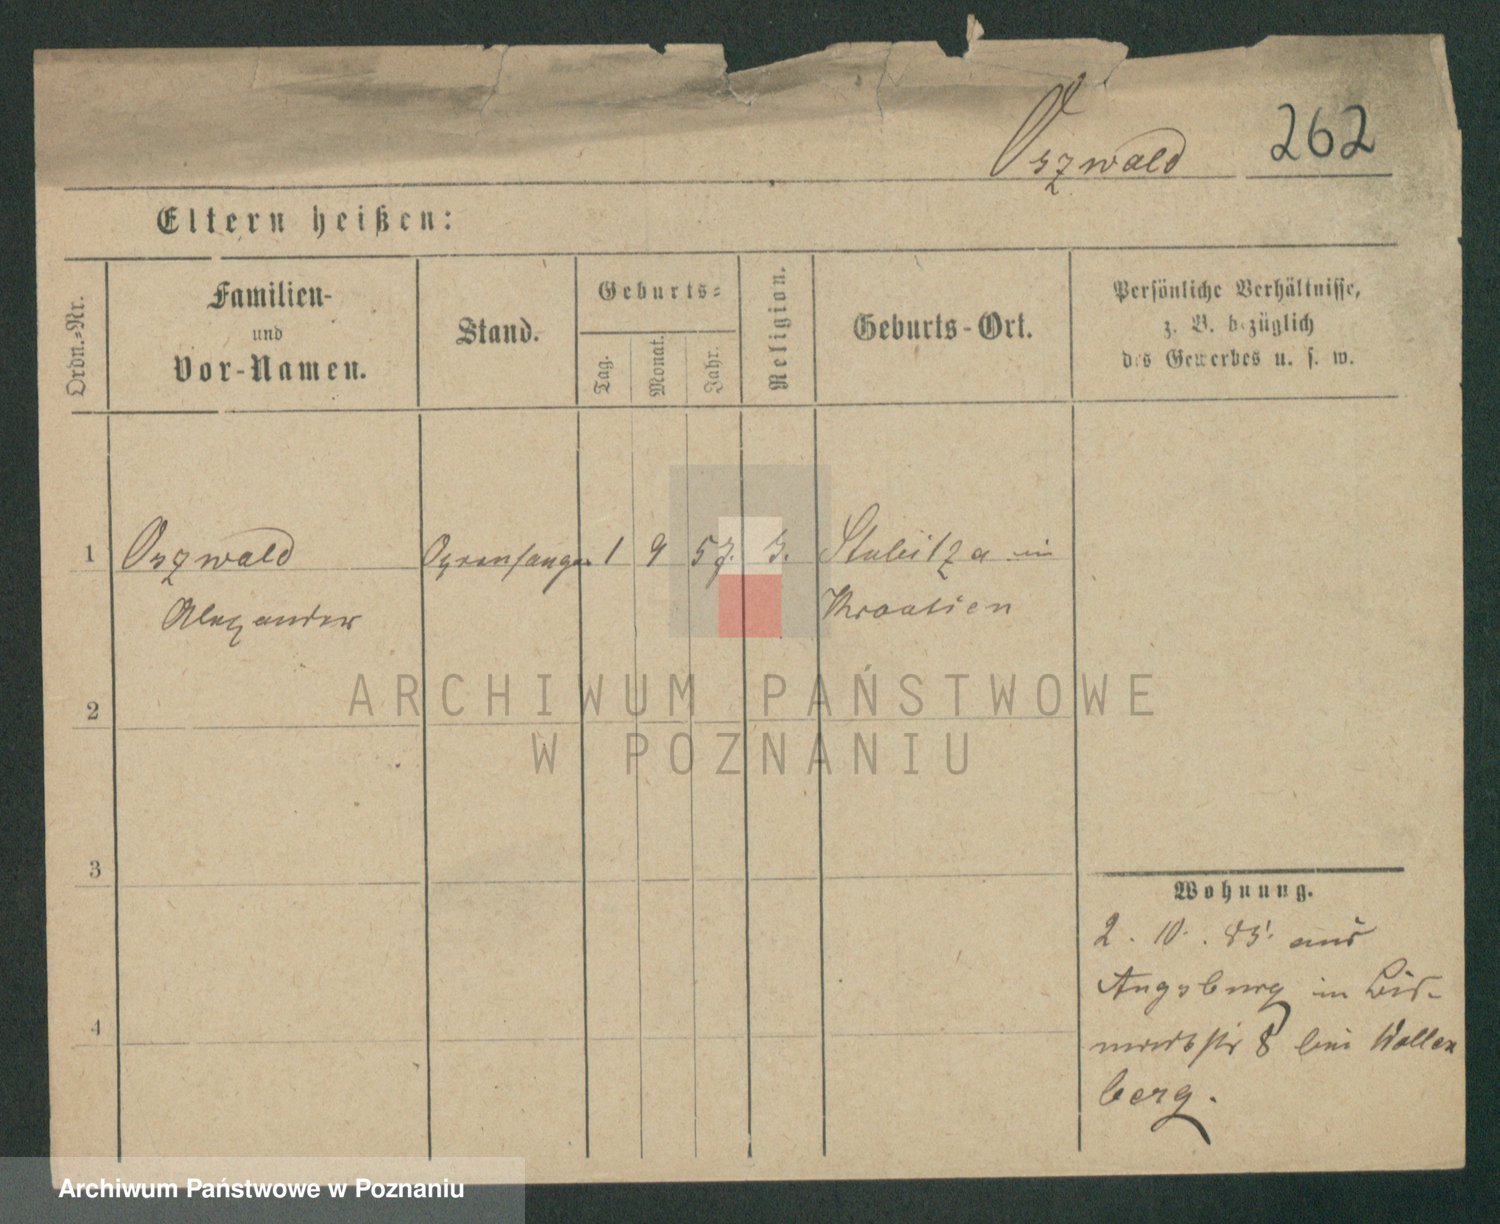 Oszwald 262
Eltern heißen:
Ordn.-Nr.
Familien-
und
Vor-Namen.
Stand.
Geburts-
Tag.
Monat.
Jahr.
Religion.
Geburts-Ort.
Persönliche Verhältnisse,
z. B. bezüglich
des Gewerbes u. s. w.
1 Oszwald Opernsänger 1 9 57. Stubitza in
Alexander Kroatien
2
3
4
Wohnung.
2. 10. 85. aus
Augsburg in Bis-
marckstr 8 bei Wollen
berg.
ARCHIWUM PAŃSTWOWE
W POZNANIU
Archiwum Państwowe w Poznaniu